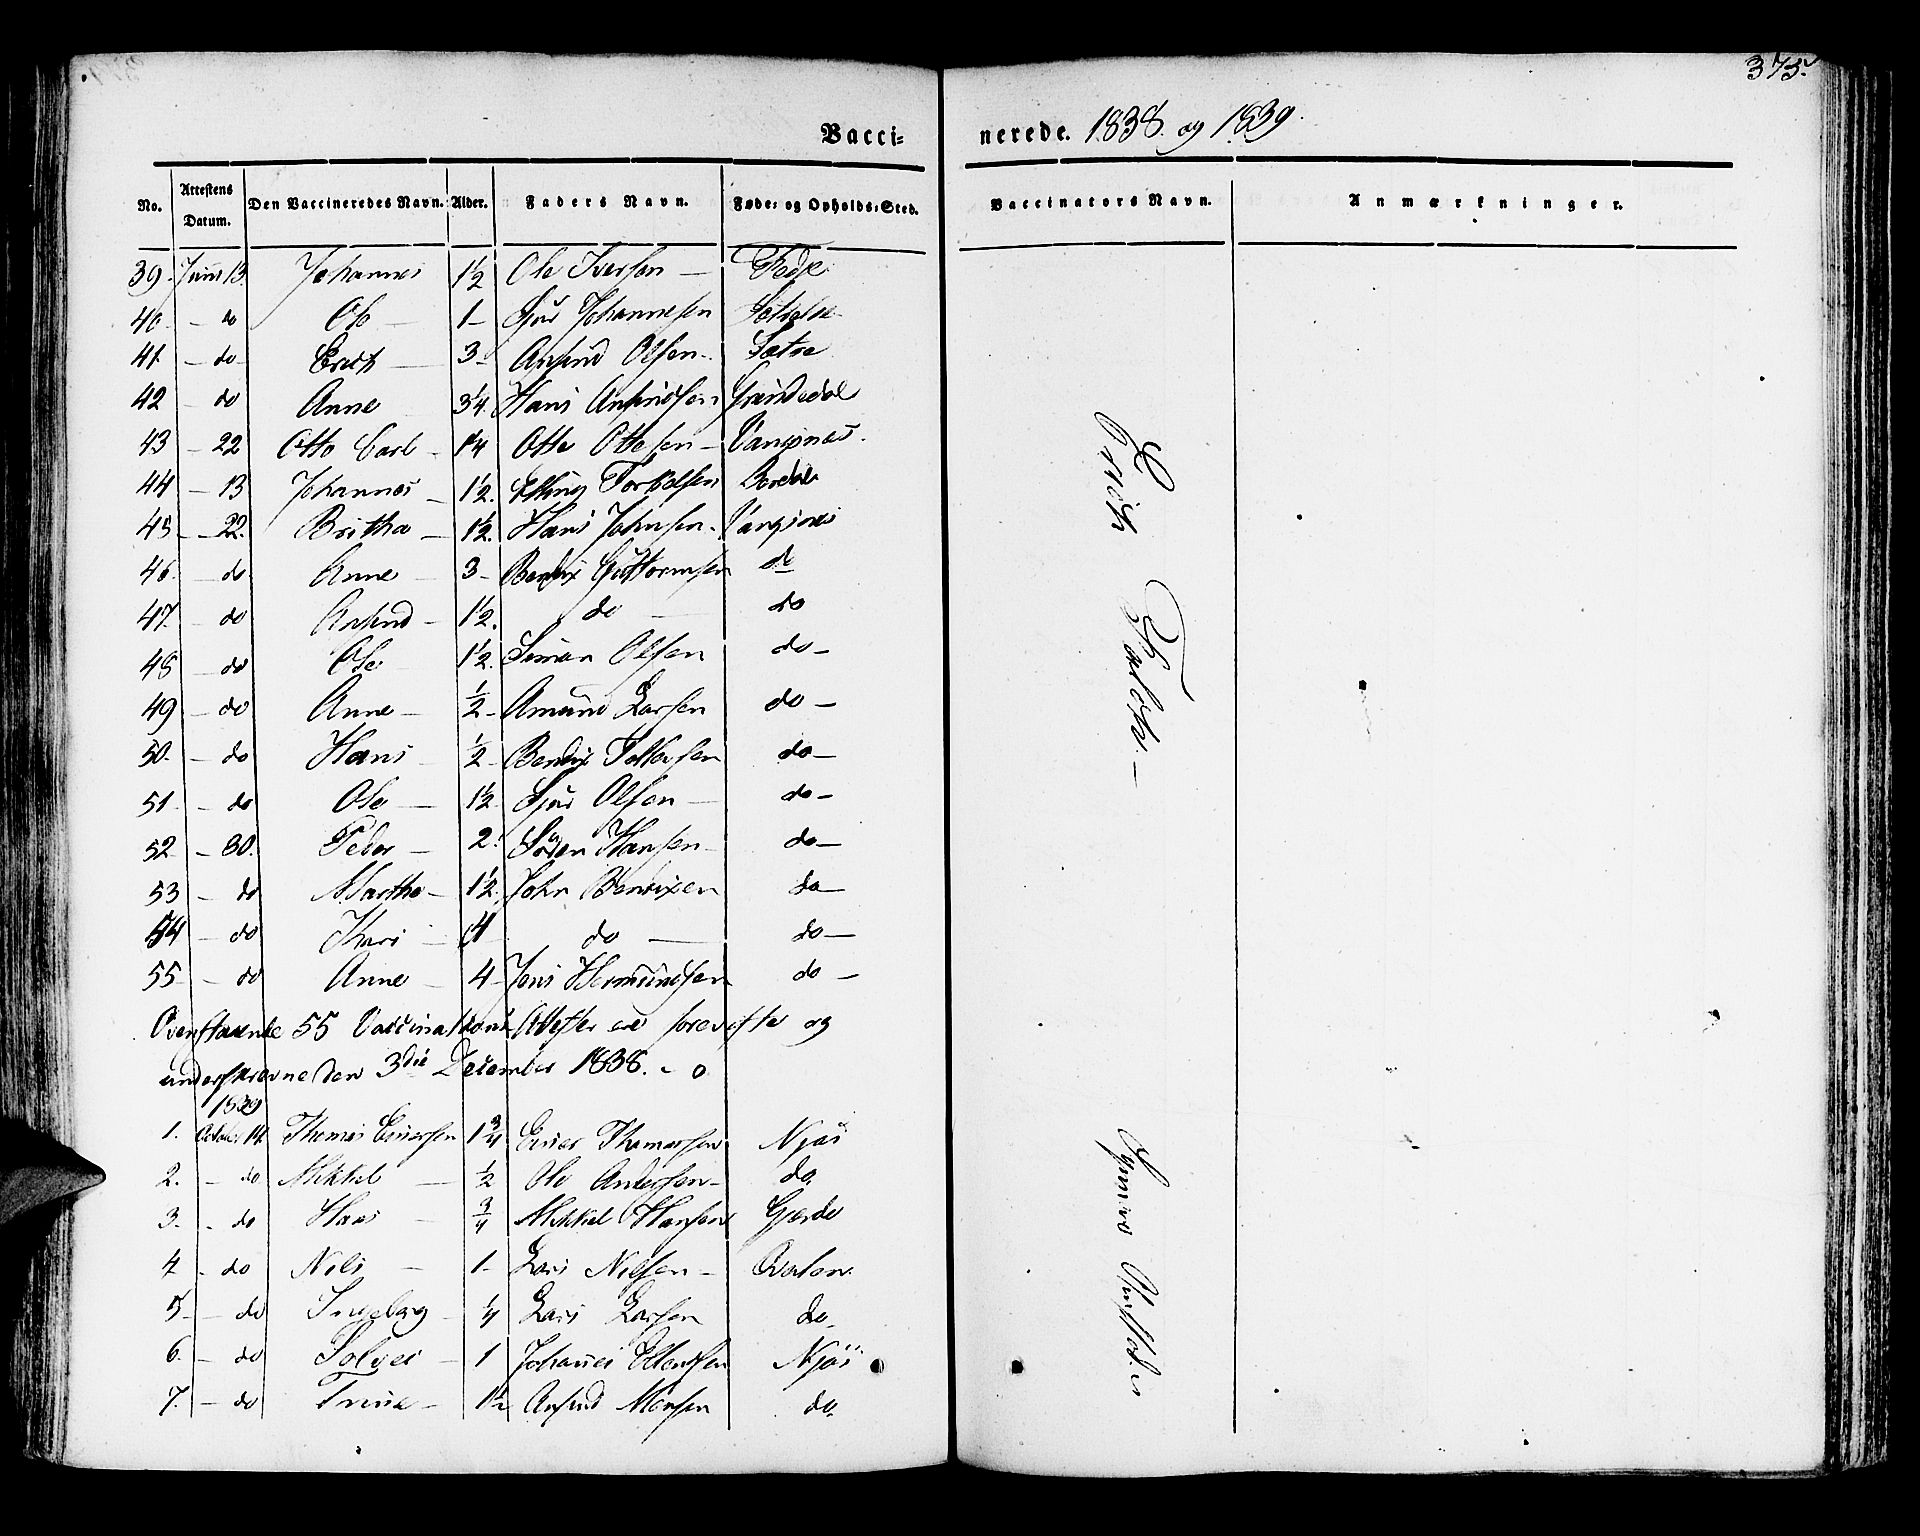 375.
Vacci= nerede. 1838. og 1839.
No. Attestens Datum. Den Vaccineredes Navn. Alder. Faders Navn. Føde= og Opholds=Sted. Vaccinators Navn. Anmærkninger.
39. Juni 13. Johannes 1½ Ole Iversen —
40 — do Ole — 1 — Sjur Johannesen
41. — do — Erich — 3 — Anfind Olsen — Sætre
42 — do Anne 3/4. Hans Anfindsen Grindedal
43 — 22 Otto Carl — 1/4 Otte Ottesen — Vangsnæs.
44 — 13 Johannes — 1½. Elling Torkelsen
45 — 22. Britha — 1½. Hans Johnsen — Vangsnæs
46. — do Anne — 3 — Bendix Guttormsen do
47. — do Anfind — 1½. do — do
48 — do Ole 1½. Simon Olsen do —
49 — do Anne — ½ — Amund Larsen do —
50. — do Hans — ½ — Bendix do —
51. — do Ole — 1½ Sjur Olsen — do —
52 — 30. Peder — 2. Søren Hansen — do —
53 — do Martha — 1½. John Bendixen do —
54 — do Kari — 4 do — do —
55 — do Anne — 4 — Jens Hermundsen do —
Ovenstaaende 55 Vaccinations Attester ere foreviste og
underskrevne den 3die December 1838.
1839
1. October 14. Thomas Einersen 1¾ Einer Thomassen Njøs
2. — do Mikkel — ½ Ole Andersen — do.
3. — do Hans — ¾ Mikkel Hansen Gjerde
4 — do Nils — 1 — Lars Nilsen —
5 — do Ingeborg — ¼ Lars Larsen do.
6. — do Solvei — 1 Johannes Njøs
7. — do — 1½ Anfind Monsen do.
Erich